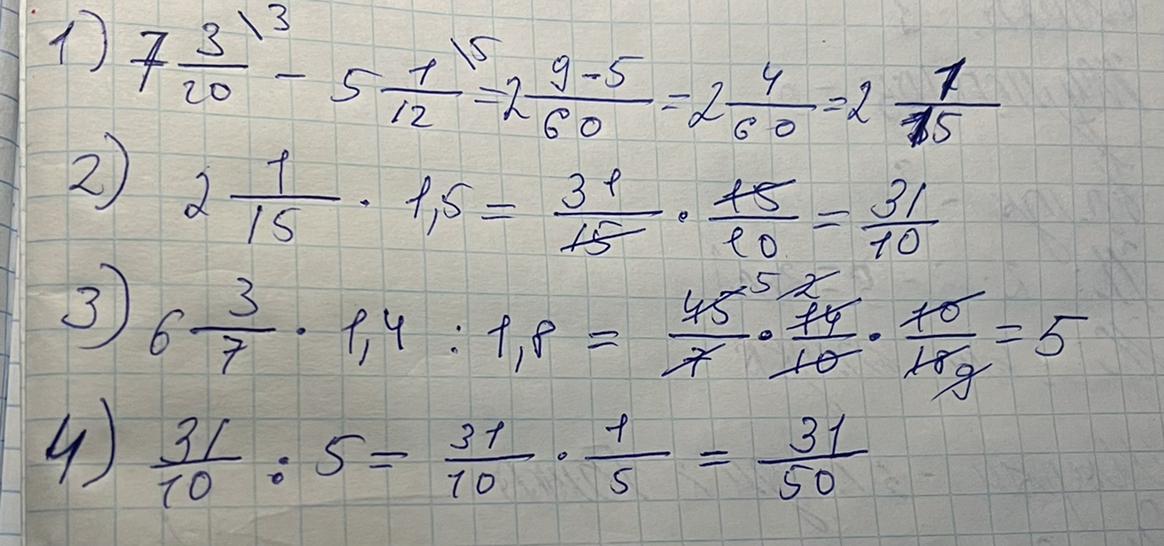 1) 7 3/20 \3 - 5 1/12 \5 = 2 9-5/60 = 2 4/60 = 2 1/15
2) 2 1/15 · 1,5 = 31/15 · 15/10 = 31/10
3) 6 3/7 · 1,4 : 1,8 = 45 5/7 · 14 2/10 · 10/18 9 = 5
4) 31/10 : 5 = 31/10 · 1/5 = 31/50